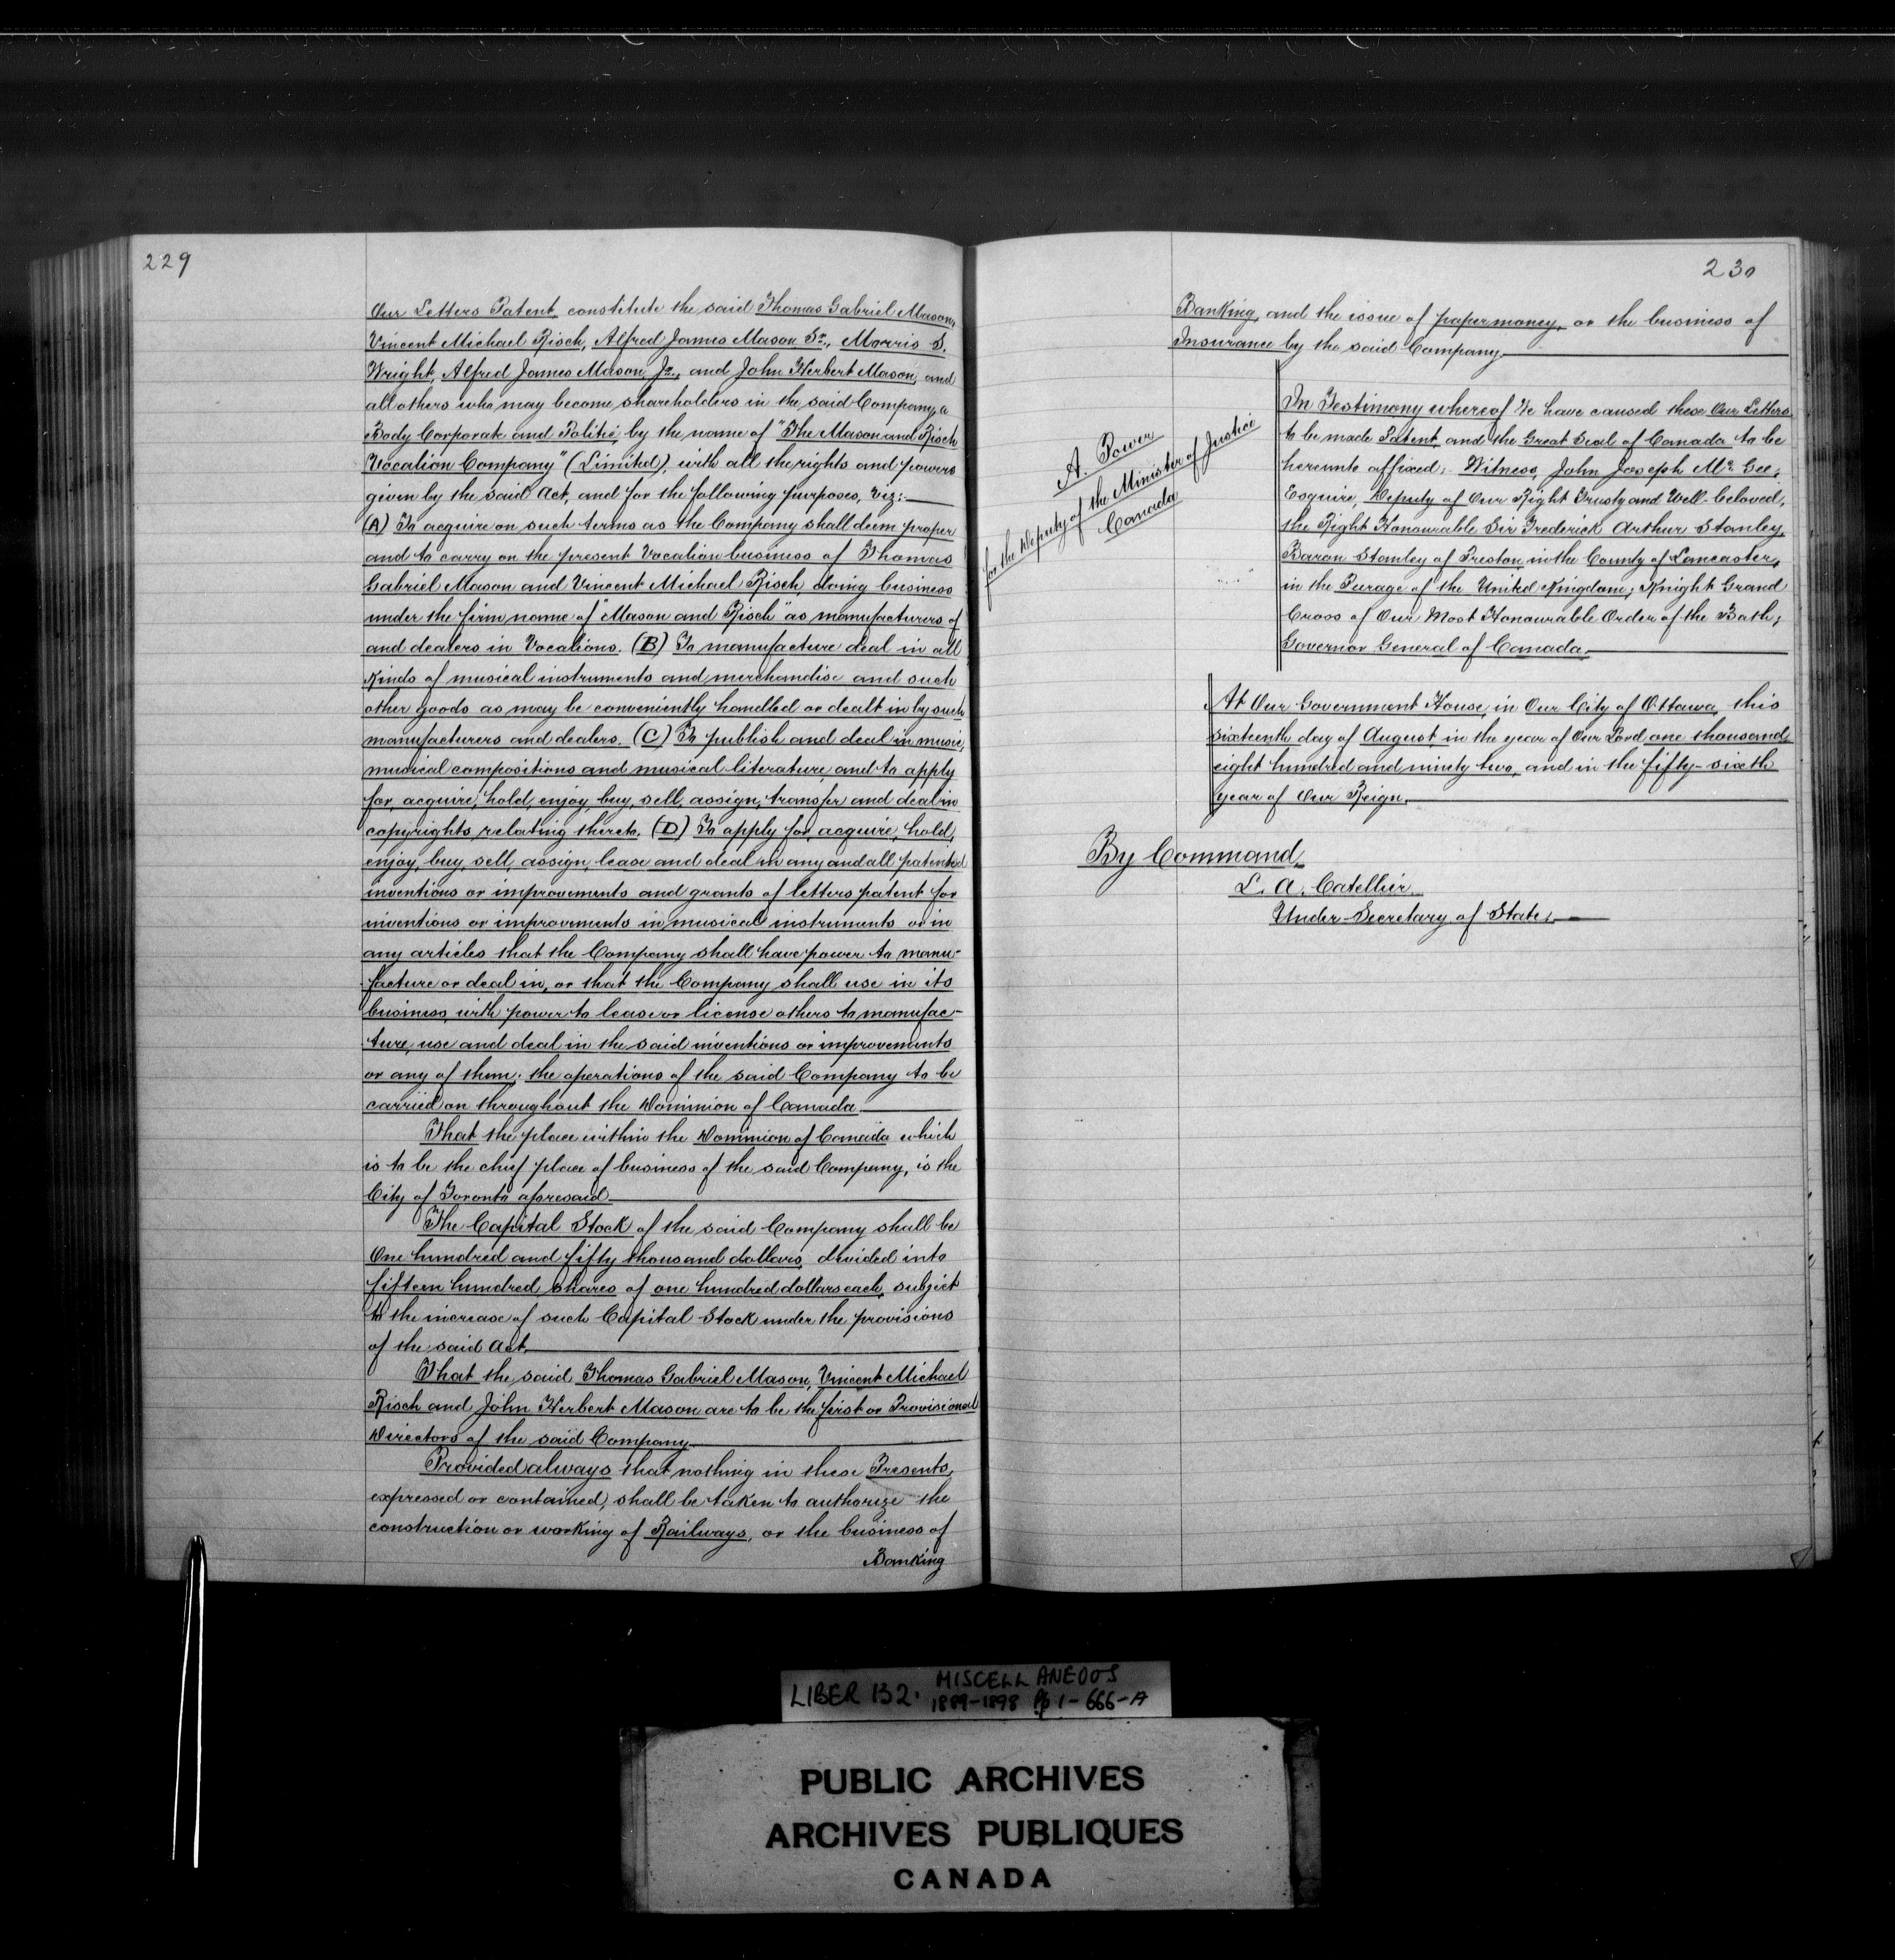 229
Our Letters Patent, constitute the said Thomas Gabriel Mason,
Vincent Michael Risch, Alfred James Mason Sr., Morris S.
Wright, Alfred James Mason, Jr., and John Herbert Mason, and
all others who may become shareholders in the said Company, a
Body Corporate and Politic, by the name of "The Mason and Risch
Vocalion Company" (Limited), with all the rights and powers
given by the said Act, and for the following purposes, viz:—
(A) To acquire on such terms as the Company shall deem proper
and to carry on the present Vocalion business of Thomas
Gabriel Mason and Vincent Michael Risch, doing business
under the firm name of "Mason and Risch" as manufacturers of
and dealers in Vocalions. (B) To manufacture deal in all
kinds of musical instruments and merchandise and such
other goods as may be conveniently handled or dealt in by such
manufacturers and dealers. (C) To publish and deal in music,
musical compositions and musical literature and to apply
for, acquire, hold, enjoy, buy, sell, assign, transfer and deal in
copyrights relating thereto. (D) To apply for, acquire, hold,
enjoy, buy, sell, assign, lease and deal in any and all patented
inventions or improvements and grants of letters patent for
inventions or improvements in musical instruments or in
any articles that the Company shall have power to manu-
facture or deal in, or that the Company shall use in its
business, with power to lease or license others to manufac-
ture, use and deal in the said inventions or improvements
or any of them; the operations of the said Company to be
carried on throughout the Dominion of Canada.
That the place within the Dominion of Canada which
is to be the chief place of business of the said Company, is the
City of Toronto aforesaid
The Capital Stock of the said Company shall be
One hundred and fifty thousand dollars, divided into
fifteen hundred shares of one hundred dollars each, subject
to the increase of such Capital Stock under the provisions
of the said Act.
That the said Thomas Gabriel Mason, Vincent Michael
Risch and John Herbert Mason are to be the first or Provisional
Directors of the said Company
Provided always that nothing in these Presents,
expressed or contained, shall be taken to authorize the
construction or working of Railways, or the business of
Banking
230
Banking, and the issue of paper money, or the business of
Insurance by the said Company.
A. Power
for the Deputy of the Minister of Justice
Canada
In Testimony whereof We have caused these Our Letters
to be made Patent, and the Great Seal of Canada to be
hereunto affixed: Witness, John Joseph McGee,
Esquire, Deputy of Our Right Trusty and Well-beloved,
the Right Honourable Sir Frederick Arthur Stanley,
Baron Stanley of Preston in the County of Lancaster,
in the Peerage of the United Kingdom; Knight Grand
Cross of Our Most Honourable Order of the Bath;
Governor General of Canada.
At Our Government House, in Our City of Ottawa, this
sixteenth day of August, in the year of Our Lord one thousand
eight hundred and ninety two, and in the fifty-sixth
year of Our Reign.
By Command,
L. A. Catellier.
Under-Secretary of State.
LIBER 132. MISCELLANEOUS
1889-1898 Pp 1-666-A
PUBLIC ARCHIVES
ARCHIVES PUBLIQUES
CANADA